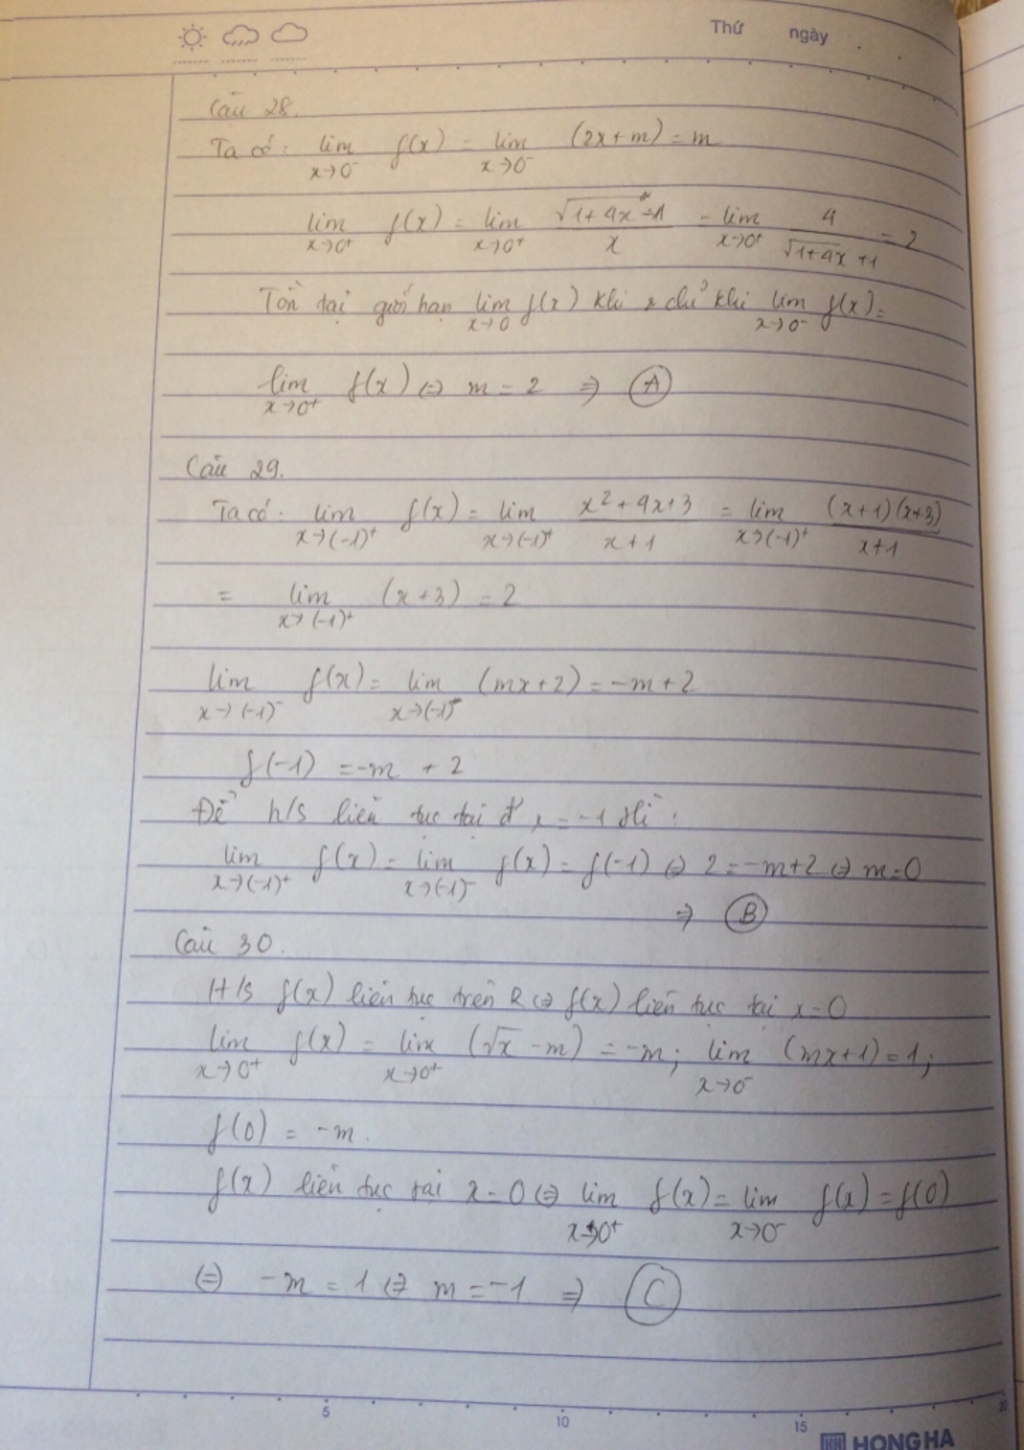 Thứ ngày
Câu 28.
Ta có: lim x→0⁻ f(x) = lim x→0⁻ (2x+m) = m
lim x→0⁺ f(x) = lim x→0⁺ (√1+4x -1)/x = lim x→0⁺ 4/(√1+4x +1) = 2
Tồn tại giới hạn lim x→0 f(x) khi & chỉ khi lim x→0⁻ f(x) =
lim x→0⁺ f(x) ⇔ m = 2 ⇒ A
Câu 29.
Ta có: lim x→(-1)⁺ f(x) = lim x→(-1)⁺ (x²+4x+3)/(x+1) = lim x→(-1)⁺ (x+1)(x+3)/(x+1)
= lim x→(-1)⁺ (x+3) = 2
lim x→(-1)⁻ f(x) = lim x→(-1)⁻ (mx+2) = -m+2
f(-1) = -m + 2
Để h/s liên tục tại đ' x = -1 thì:
lim x→(-1)⁺ f(x) = lim x→(-1)⁻ f(x) = f(-1) ⇔ 2 = -m+2 ⇔ m=0
⇒ B
Câu 30.
H/s f(x) liên tục trên R ⇔ f(x) liên tục tại x=0
lim x→0⁺ f(x) = lim x→0⁺ (√x - m) = -m; lim x→0⁻ (mx+1) = 1;
f(0) = -m.
f(x) liên tục tại x = 0 ⇔ lim x→0⁺ f(x) = lim x→0⁻ f(x) = f(0)
⇔ -m = 1 ⇔ m = -1 ⇒ C
5 10 15 20
HH HONG HA